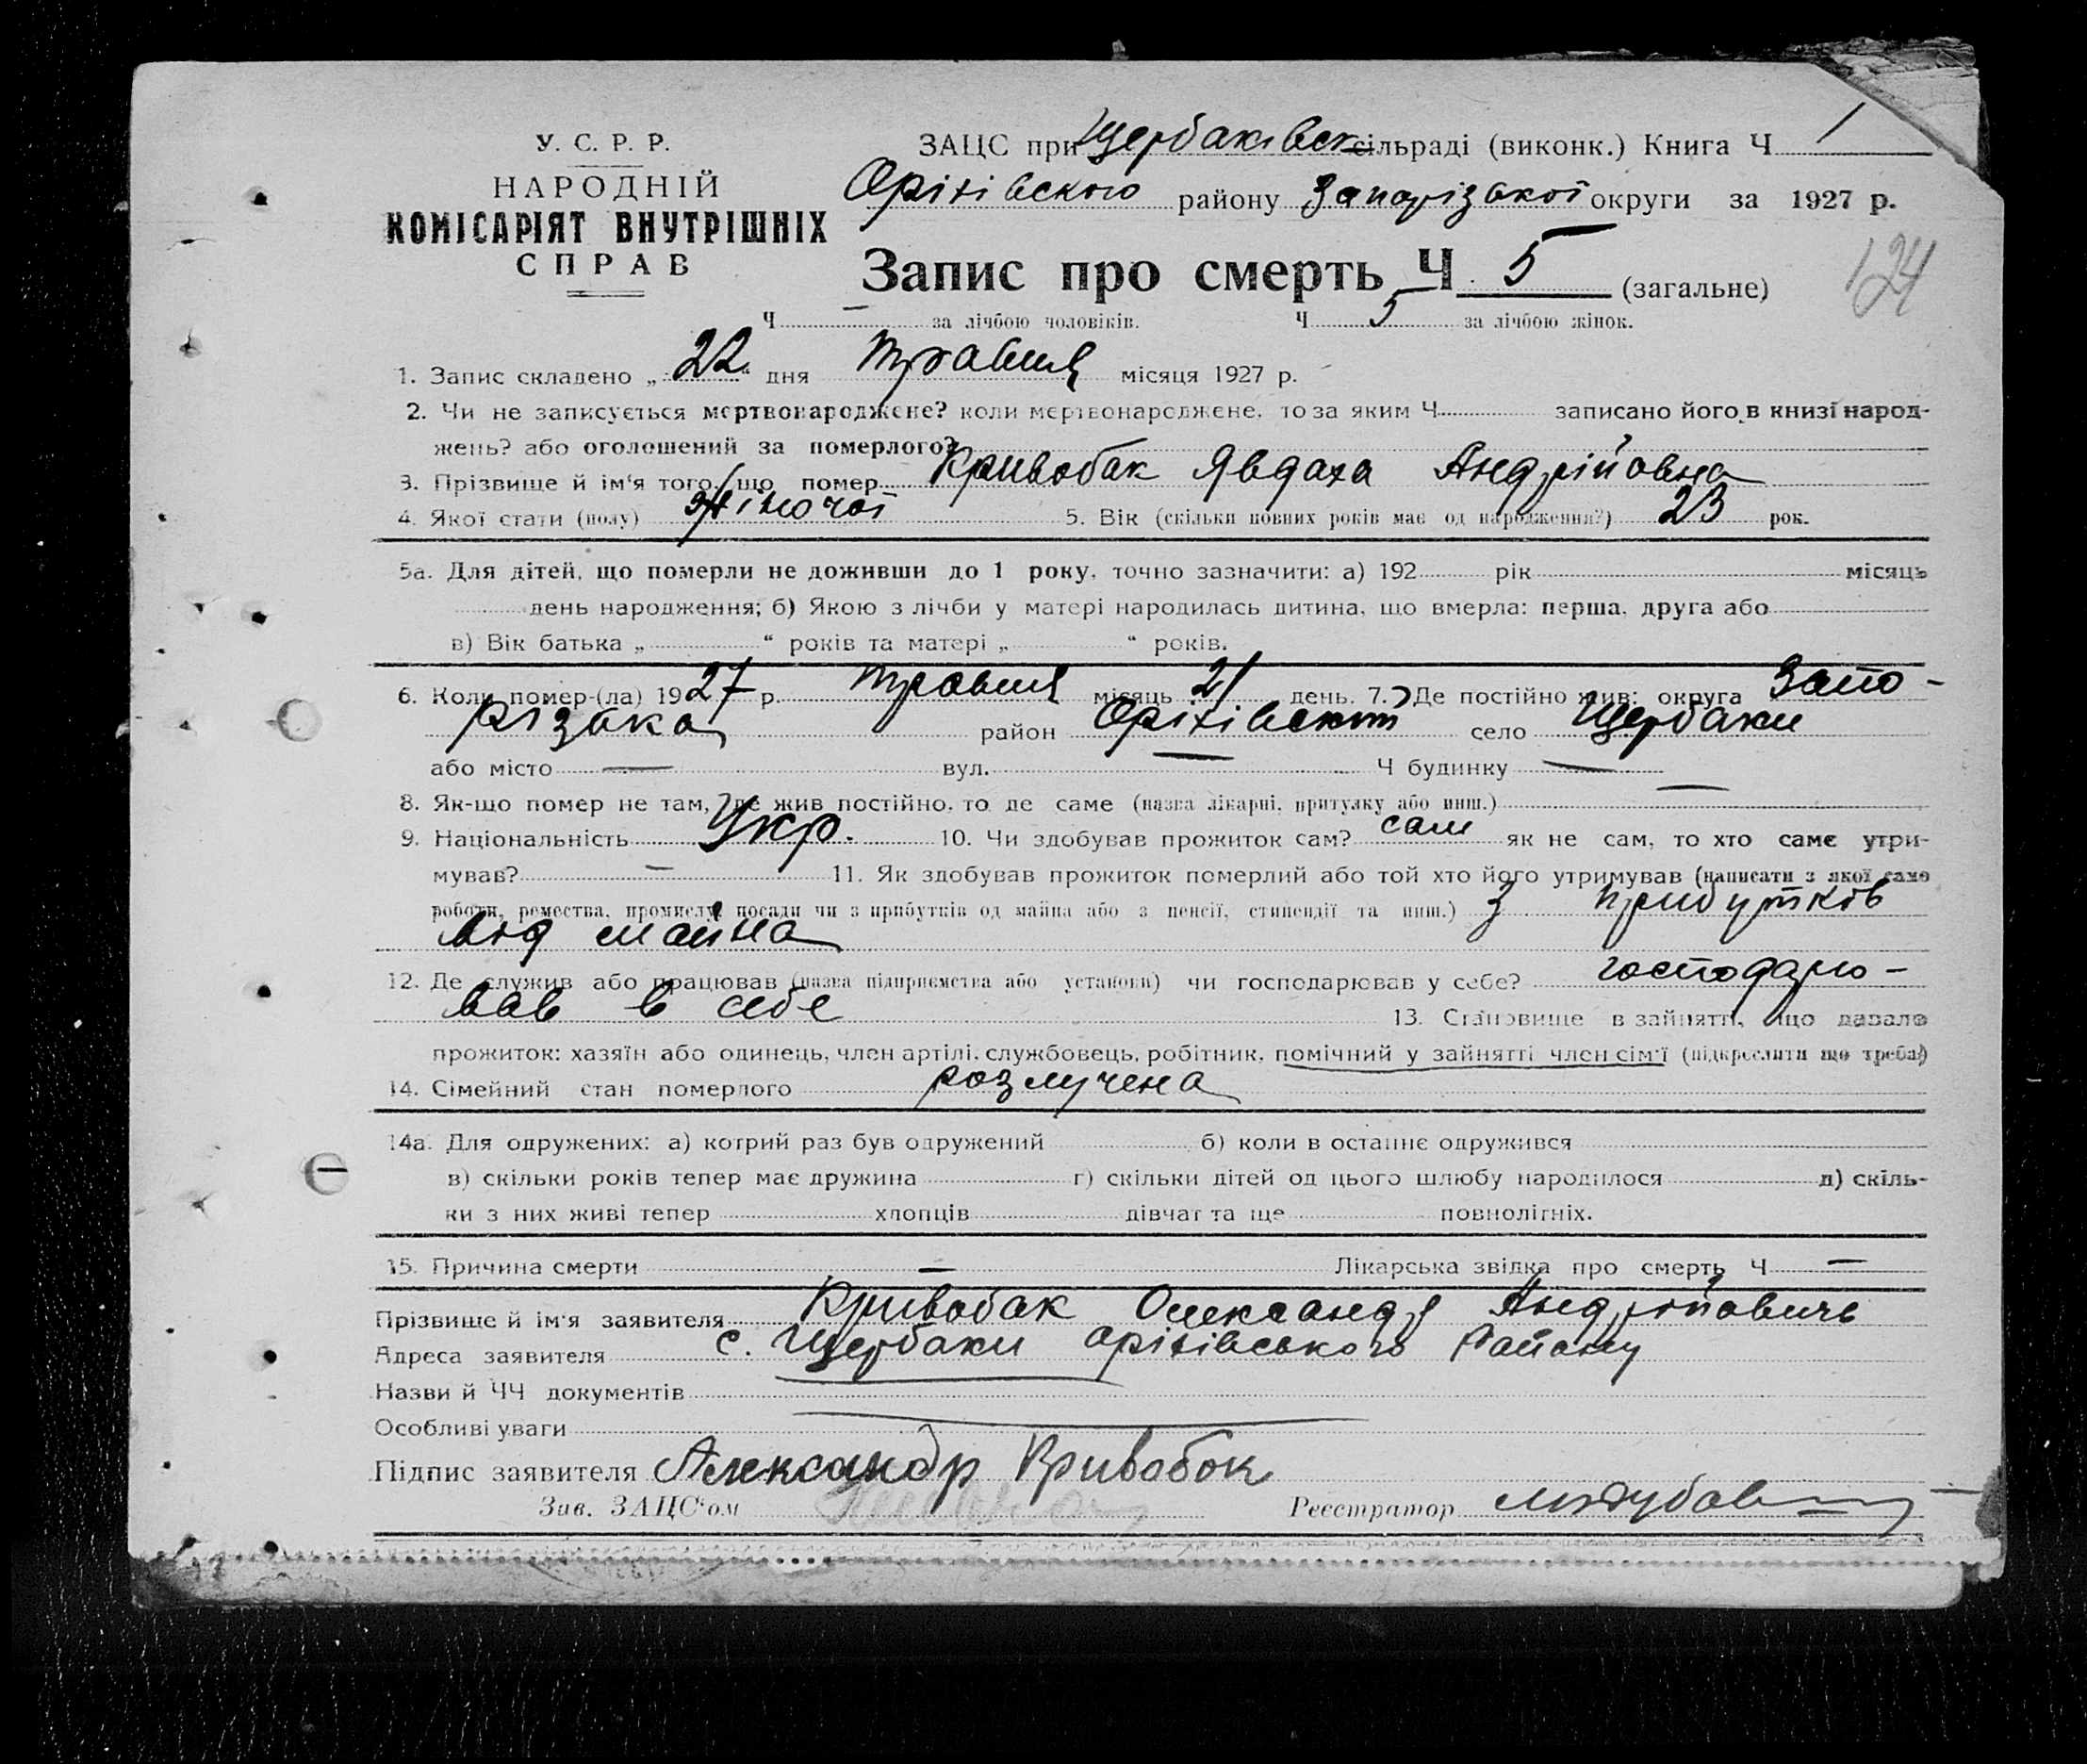 У. С. Р. Р.
НАРОДНІЙ
КОМІСАРІЯТ ВНУТРІШНІХ
СПРАВ
ЗАЦС при Щербаківск сільраді (виконк.) Книга Ч 1
Оріхівского району Запорізької округи за 1927 р.
Запис про смерть Ч 5 (загальне)
124
Ч — за лічбою чоловіків. Ч 5 за лічбою жінок.
1. Запис складено „22" дня травня місяця 1927 р.
2. Чи не записується мертвонароджене? коли мертвонароджене, то за яким Ч записано його в книзі народ-
жень? або оголошений за померлого?
3. Прізвище й ім'я того, що помер Кривобак Явдаха Андрійовна
4. Якої стати (полу) жіночої 5. Вік (скільки повних років має од народження?) 23 рок.
5а. Для дітей, що померли не доживши до 1 року, точно зазначити: а) 192 рік місяць
день народження; б) Якою з лічби у матері народилась дитина, що вмерла: перша, друга або
в) Вік батька „ “ років та матері „ “ років.
6. Коли помер-(ла) 1927 р. травня місяць 21 день. 7. Де постійно жив: округа Запо-
різька район Оріхівскт село Щербаки
або місто — вул. — Ч будинку —
8. Як-що помер не там, де жив постійно, то де саме (назва лікарні, притулку або инш.) —
9. Національність Укр. 10. Чи здобував прожиток сам? сам як не сам, то хто саме утри-
мував? — 11. Як здобував прожиток померлий або той хто його утримував (написати з якої само
роботи, ремества, промислу, посади чи з прибутків од майна або з пенсії, стипендії та инш.) З прибутків
від майна
12. Де служив або працював (назва підприємства або установи) чи господарював у себе? господарю-
вав в себе 13. Становище в зайнятті, що давало
прожиток: хазяїн або одинець, член артілі, службовець, робітник, помічний у зайнятті член сім'ї (підкреслити що треба)
14. Сімейний стан померлого розлучена
14а. Для одружених: а) котрий раз був одружений б) коли в останнє одружився
в) скільки років тепер має дружина г) скільки дітей од цього шлюбу народилося д) скіль-
ки з них живі тепер хлопців дівчат та ще повнолітніх.
15. Причина смерти — Лікарська звідка про смерть Ч —
Прізвище й ім'я заявителя Кривобак Олександр Андрійовичь
Адреса заявителя с. Щербаки оріхівського району
Назви й ЧЧ документів
Особливі уваги
Підпис заявителя Александр Кривобок
Зав. ЗАЦС'ом Реєстратор